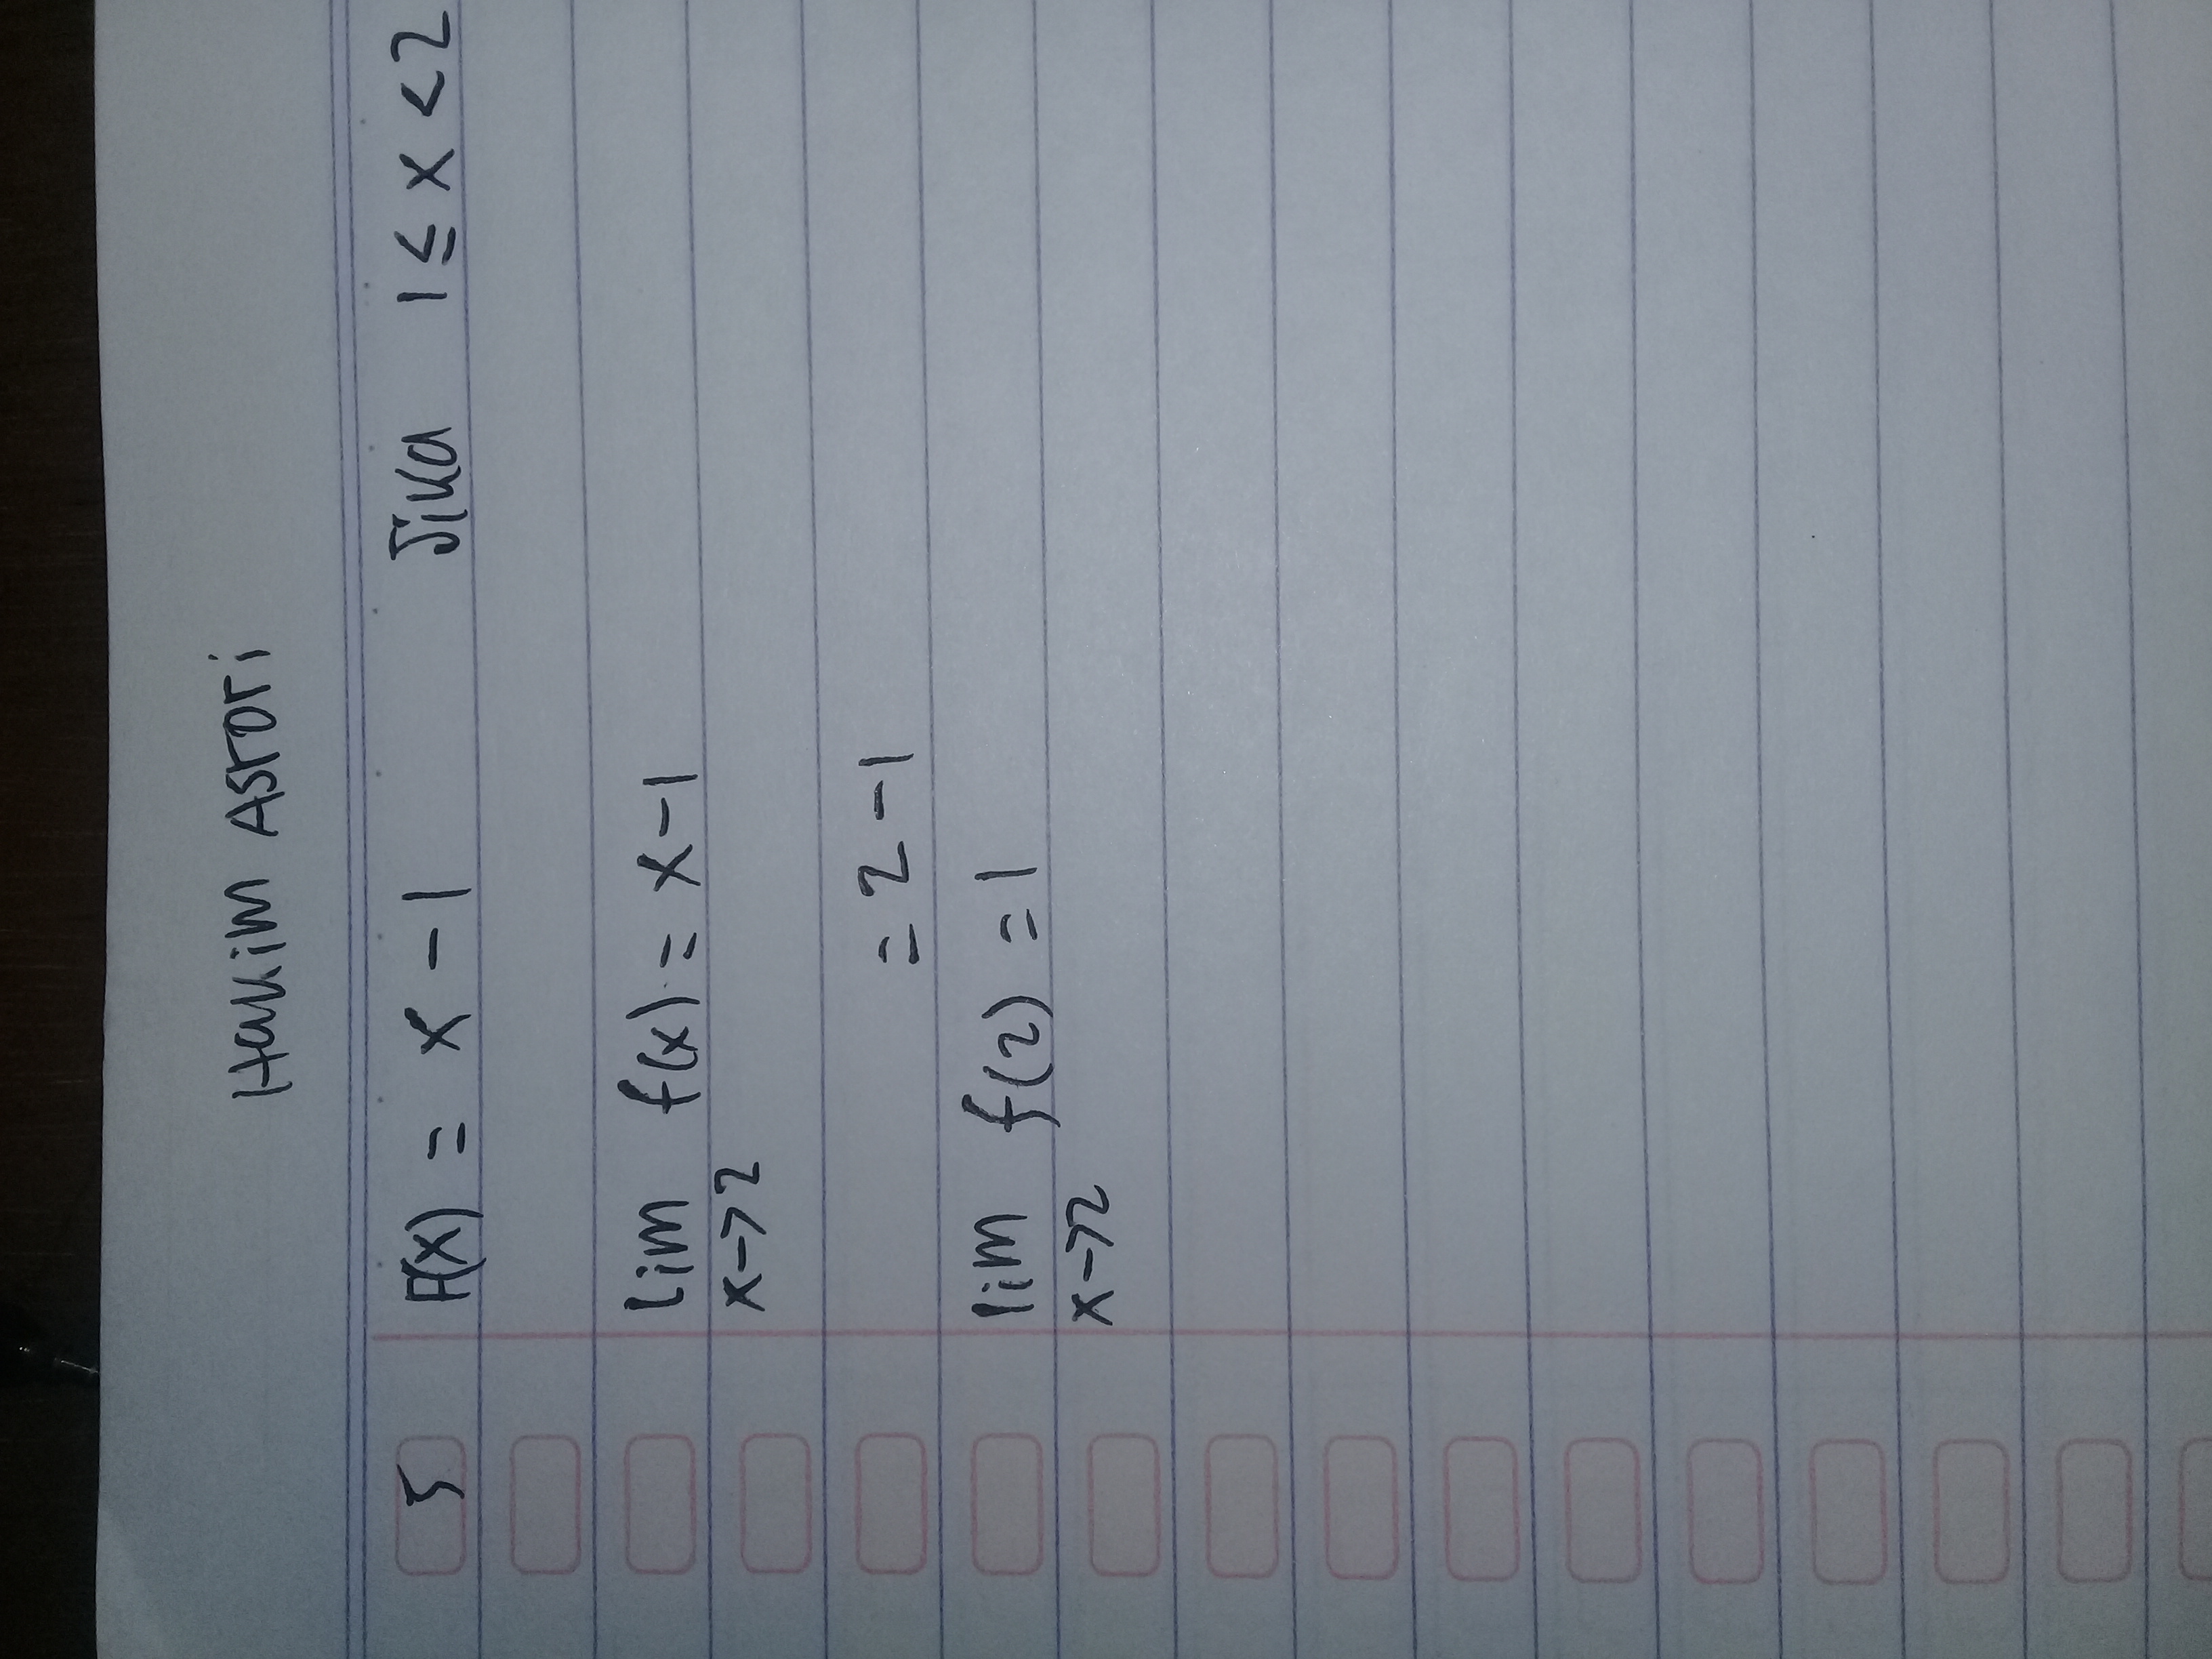 Hakim Asrori
5 F(x) = x - 1 Jika 1 ≤ x < 2
lim f(x) = x - 1
x -> 2
= 2 - 1
lim f(2) = 1
x -> 2